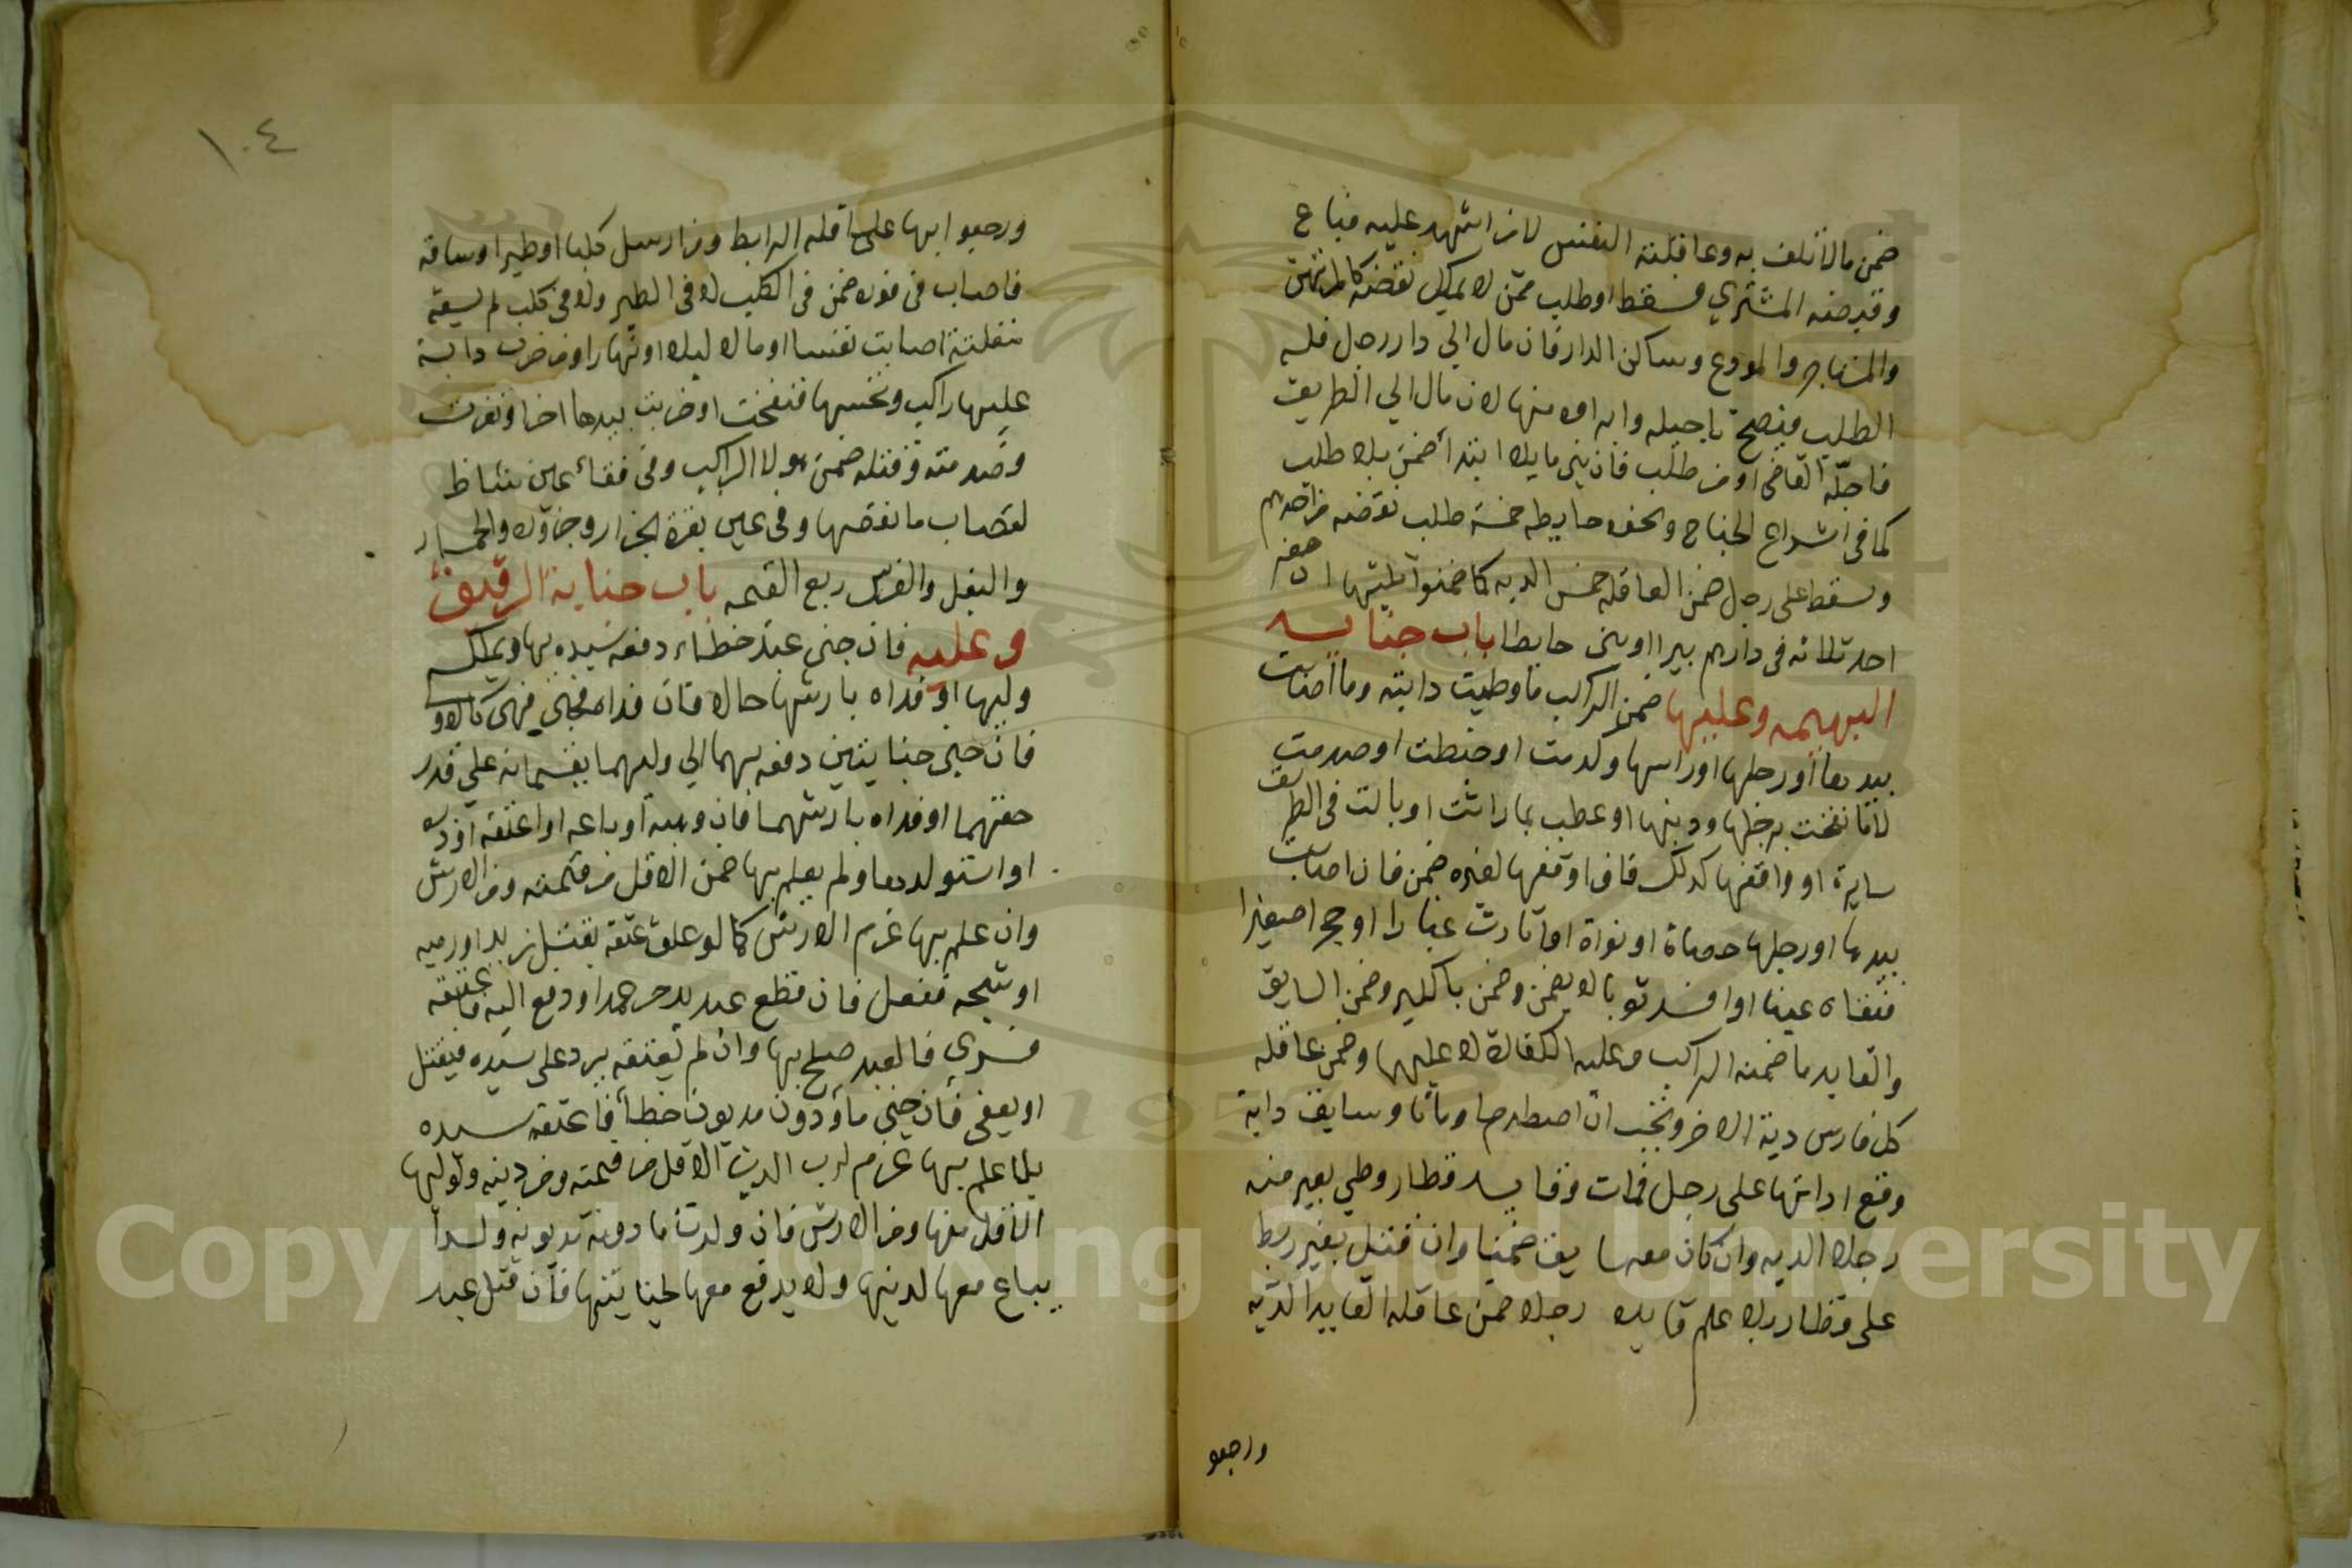 ضمن مالا تلف به وعاقلته النفس لا من اشهد عليه فباع
وقبضه المشتري فسقط او طلب ممن لا يملك نقضه كالمرتهن
والمستاجر والمودع وساكن الدار فان مال الي دار رجل فله
الطلب فيصح تاجيله وابراوه منها لا ان مال الي الطريق
فاجله القاضي او من طلب فان بني مايلا ابتدا ضمن بلا طلب
كما في اشراع الجناح ونحوه حايط خمسة طلب نقضه من احدهم
وسقط على رجل ضمن العاقله خمس الديه كما ضمنوا ثلثيها ان حفر
احد ثلاثه في دارهم بيرا او بنى حايطا باب جناية
البهيمه وعليها ضمن الراكب ما وطيت دابته وما اصابت
بيدها او رجلها او راسها وكدمت او خبطت او صدمت
لا ما نفحت برجلها وذنبها او عطب بما راثت او بالت في الطريق
سايرة او واقفها كذلك فان اوقفها لغيره ضمن فان اصابت
بيدها او رجلها حصاة او نواة او اثارت غبارا او حجرا صغيرا
ففقاه عينا او افسد ثوبا لا يضمن وضمن بالكبير وضمن السايق
والقايد ما ضمنه الراكب وعليه الكفارة لا عليهما وضمن عاقله
كل فارس دية الاخر وتجب ان اصطدما وماتا وسايق دابة
وقع اداتها على رجل فمات وقايد قطار وطي بعير منه
رجلا الديه وان كان معه سايق ضمنا وان قتل بعير ربط
على قطار بلا علم قايده رجلا ضمن عاقله القايد الديه
ورجعو
١٠٤
ورجعوا بها على عاقله الرابط ومن ارسل كلبا او طيرا وساقه
فاصاب في فوره ضمن في الكلب لا في الطير ولا في كلب لم يسقه
منفلتة اصابت نفسا او مالا ليلا او نهارا ومن ضرب دابة
عليها راكب ونخسها فنفحت او ضربت بيدها اخر او نفرت
وصدمته وقتله ضمن هو لا الراكب وفي فقأ عين شاة
لقصاب ما نقصها وفي عين بقرة الجزار وجزوره والحمار
والبغل والفرس ربع القيمه باب جناية الرقيق
وعليه فان جنى عبد خطاء دفعه سيده بها ويملكه
وليها او فداه بارشها حالا فان فداه فجني فهي كالاولى
فان جنى جنايتين دفعه بهما الي وليهما يقتسمانه علي قدر
حقهما او فداه بارشهما فان وهبه او باعه او اعتقه او دبره
او استولدها ولم يعلم بها ضمن الاقل من قيمته ومن الارش
وان علم بها غرم الارش كما لو علق عتقه بقتل زيد او رميه
او شجه ففعل فان قطع عبد يد حر عمدا ودفع اليه فاعتقه
فسري فالعبد صلح بها وان لم يعتقه يرد على سيده فيقتل
او يعفى فان جنى ماذون مديون خطأ فاعتقه سيده
بلا علم بها غرم لرب الدين الاقل من قيمته ومن دينه ولوليها
الاقل منها ومن الارش فان ولدت ماذونة مديونة ولدا
يباع معها لدينها ولا يدفع معها لجنايتها فان قتل عبد